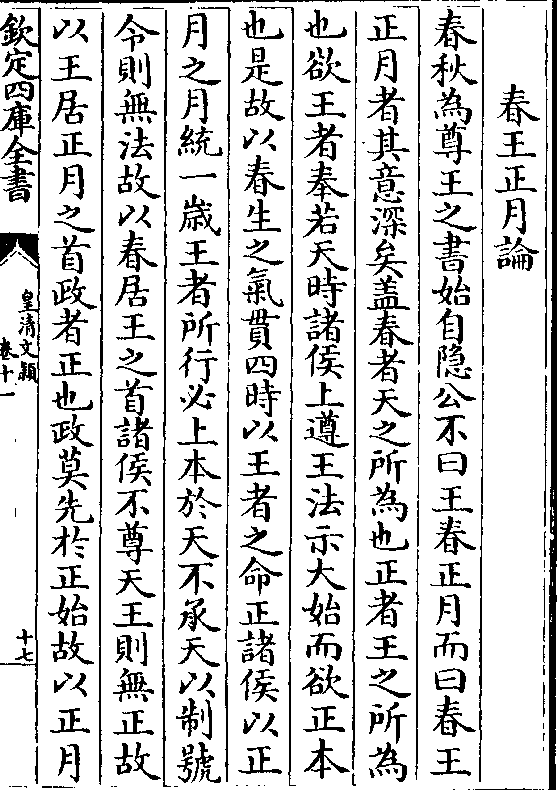 春王正月論
春秋為尊王之書始自隐公不曰王春正月而曰春王
正月者其意深矣盖春者天之所為也正者王之所為
也欲王者奉若天時諸侯上遵王法示大始而欲正本
也是故以春生之氣貫四時以王者之命正諸侯以正
月之月統一歲王者所行必上本於天不承天以制號
令則無法故以春居王之首諸侯不尊天王則無正故
以王居正月之首政者正也政莫先於正始故以正月
欽定四庫全書
皇清文穎
卷十一
十七